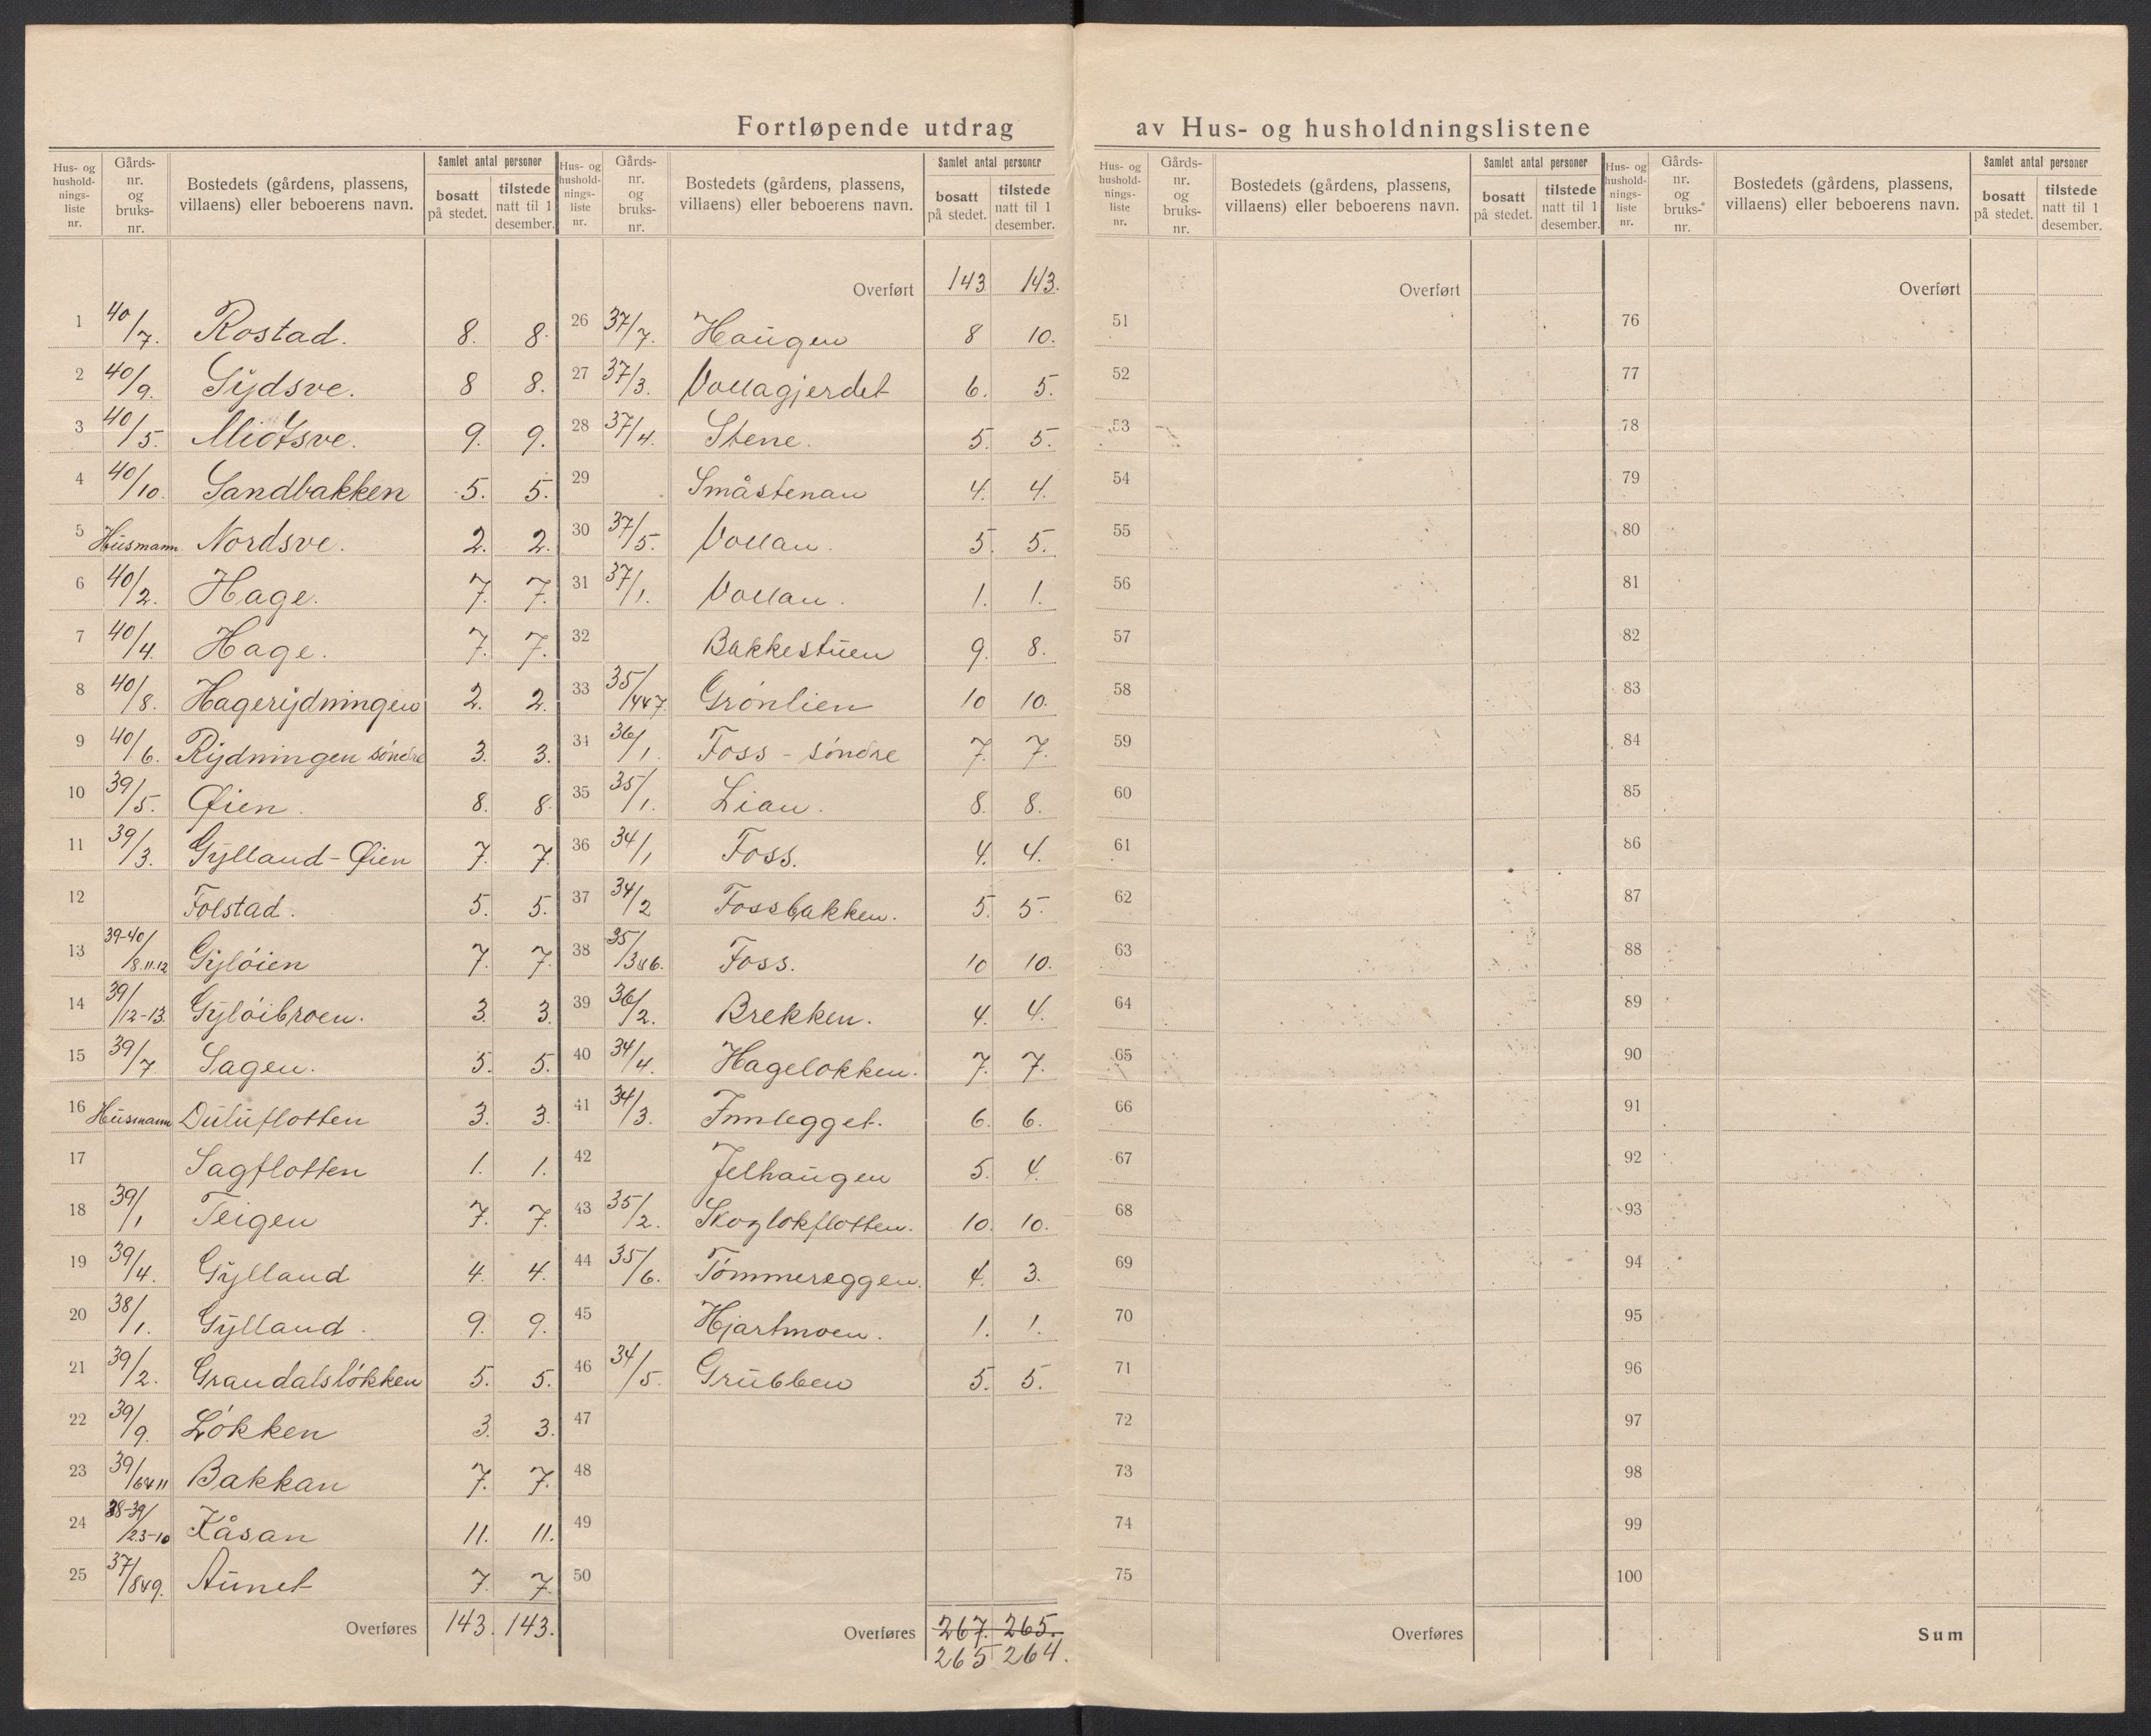 Fortløpende utdrag av Hus- og husholdningslistene
Hus- og husholdnings-liste nr. | Gårds-nr. og bruks-nr. | Bostedets (gårdens, plassens, villaens) eller beboerens navn. | Samlet antal personer: bosatt på stedet. | tilstede natt til 1 desember.
1 40/7. Rostad. 8. 8.
2 40/9. Sydsve. 8 8.
3 40/5. Midtsve. 9. 9.
4 40/10. Sandbakken 5. 5.
5 Husmann Nordsve. 2. 2.
6 40/2. Hage. 7. 7.
7 40/4. Hage. 7. 7.
8 40/8. Hagerydningen 2. 2.
9 40/6. Rydningen søndre 3. 3.
10 39/5. Øien. 8. 8.
11 39/3. Gylland-Øien 7. 7.
12 Folstad. 5. 5.
13 39-40/8.11.12 Gyløien 7. 7.
14 39/12-13. Gyløibroen. 3. 3.
15 39/7. Sagen. 5. 5.
16 Husmann Duluflotten 3. 3.
17 Sagflotten 1. 1.
18 39/1 Teigen 7. 7.
19 39/4. Gylland 4. 4.
20 38/1. Gylland. 9. 9.
21 39/2. Grandalsløkken 5. 5.
22 39/9. Løkken 3. 3.
23 39/6&11 Bakkan 7. 7.
24 38-39/23-10 Kåsan 11. 11.
25 37/8&9. Aunet 7. 7.
Overføres 143. 143.
Hus- og husholdnings-liste nr. | Gårds-nr. og bruks-nr. | Bostedets (gårdens, plassens, villaens) eller beboerens navn. | Samlet antal personer: bosatt på stedet. | tilstede natt til 1 desember.
Overført 143 143.
26 37/7. Haugen 8 10.
27 37/3. Vollagjerdet 6. 5.
28 37/4. Stene. 5. 5.
29 Småstenan 4. 4.
30 37/5. Vollan. 5. 5.
31 37/1. Vollan. 1. 1.
32 Bakkestuen 9. 8.
33 35/4&7. Grønlien 10 10.
34 36/1. Foss - søndre 7. 7.
35 35/1. Lian. 8. 8.
36 34/1 Foss. 4. 4.
37 34/2 Fossbakken. 5. 5.
38 35/3&6. Foss. 10 10.
39 36/2. Brekken. 4. 4.
40 34/4. Hageløkken. 7. 7.
41 34/3. Innlegget. 6. 6.
42 Jelhaugen 5. 4.
43 35/2. Skoglokflotten. 10. 10.
44 35/6. Tømmereggen. 4. 3.
45 Hjartmoen. 1. 1.
46 34/5. Grubben 5. 5.
47
48
49
50
Overføres 267. 265.
265 264.
Hus- og husholdnings-liste nr. | Gårds-nr. og bruks-nr. | Bostedets (gårdens, plassens, villaens) eller beboerens navn. | Samlet antal personer: bosatt på stedet. | tilstede natt til 1 desember.
Overført
51
52
53
54
55
56
57
58
59
60
61
62
63
64
65
66
67
68
69
70
71
72
73
74
75
Overføres
Hus- og husholdnings-liste nr. | Gårds-nr. og bruks-nr. | Bostedets (gårdens, plassens, villaens) eller beboerens navn. | Samlet antal personer: bosatt på stedet. | tilstede natt til 1 desember.
Overført
76
77
78
79
80
81
82
83
84
85
86
87
88
89
90
91
92
93
94
95
96
97
98
99
100
Sum